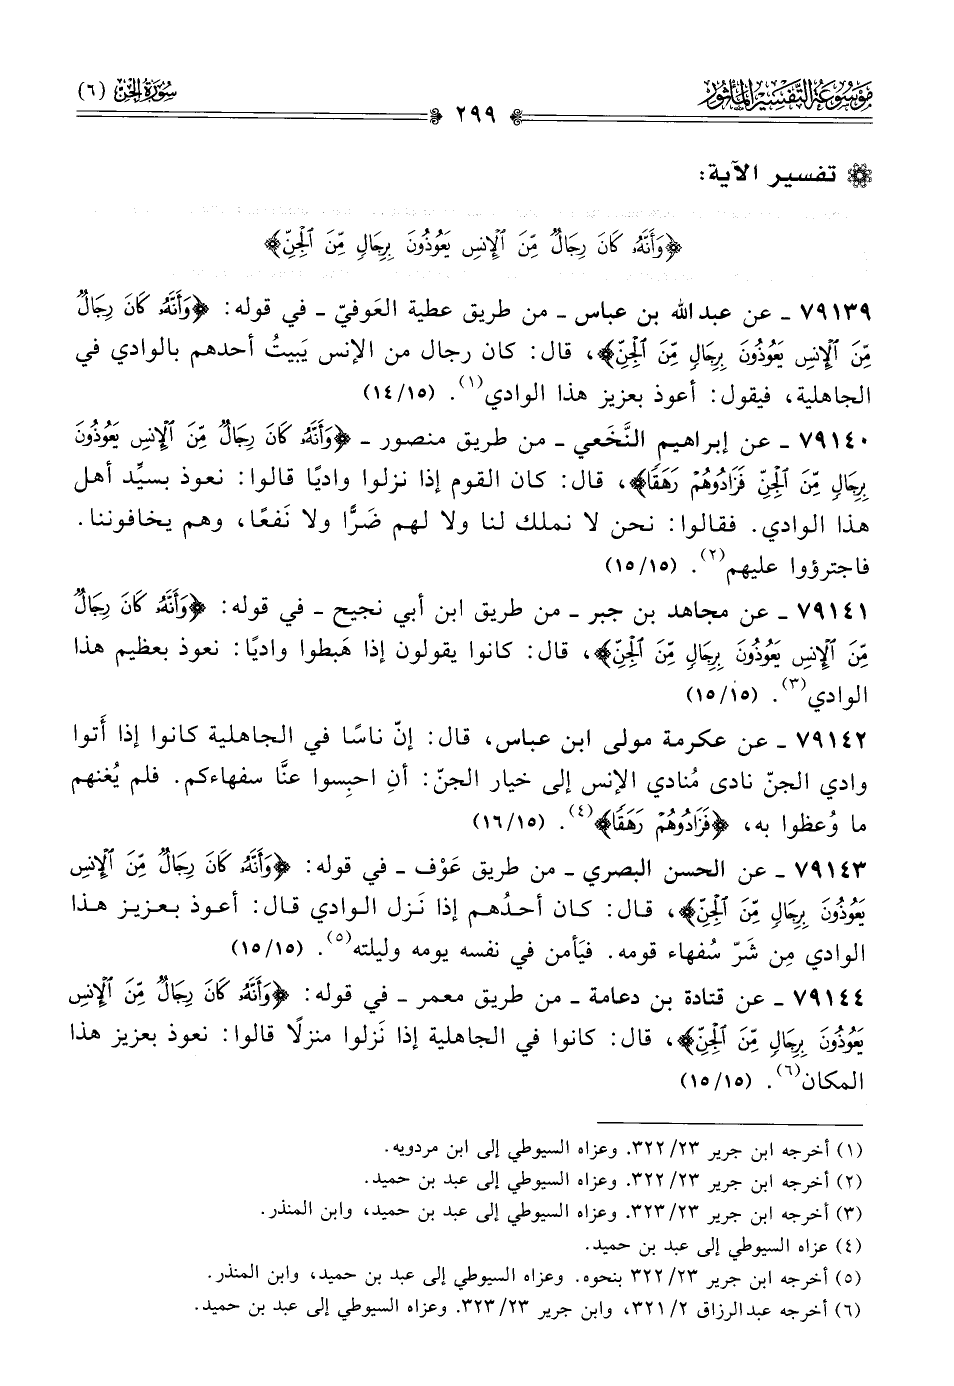 مَوْسُوعَةُ التَّفْسِيرِ المَأْثُورِ
سُورَةُ الجِنّ (٦)
٢٩٩
تفسير الآية:
﴿وَأَنَّهُۥ كَانَ رِجَالٌ مِّنَ ٱلْإِنسِ يَعُوذُونَ بِرِجَالٍ مِّنَ ٱلْجِنِّ﴾
٧٩١٣٩ ـ عن عبد الله بن عباس ـ من طريق عطية العَوفيّ ـ في قوله: ﴿وَأَنَّهُۥ كَانَ رِجَالٌ
مِّنَ ٱلْإِنسِ يَعُوذُونَ بِرِجَالٍ مِّنَ ٱلْجِنِّ﴾، قال: كان رجال من الإنس يَبيتُ أحدهم بالوادي في
الجاهلية، فيقول: أعوذ بعزيز هذا الوادي(١). (١٤/١٥)
٧٩١٤٠ ـ عن إبراهيم النَّخَعي ـ من طريق منصور ـ ﴿وَأَنَّهُۥ كَانَ رِجَالٌ مِّنَ ٱلْإِنسِ يَعُوذُونَ
بِرِجَالٍ مِّنَ ٱلْجِنِّ فَزَادُوهُمْ رَهَقًا﴾، قال: كان القوم إذا نزلوا واديًا قالوا: نعوذ بسيِّد أهل
هذا الوادي. فقالوا: نحن لا نملك لنا ولا لهم ضَرًّا ولا نَفعًا، وهم يخافوننا.
فاجترؤوا عليهم(٢). (١٥/١٥)
٧٩١٤١ ـ عن مجاهد بن جبر ـ من طريق ابن أبي نجيح ـ في قوله: ﴿وَأَنَّهُۥ كَانَ رِجَالٌ
مِّنَ ٱلْإِنسِ يَعُوذُونَ بِرِجَالٍ مِّنَ ٱلْجِنِّ﴾، قال: كانوا يقولون إذا هَبطوا واديًا: نعوذ بعظيم هذا
الوادي(٣). (١٥/١٥)
٧٩١٤٢ ـ عن عكرمة مولى ابن عباس، قال: إنّ ناسًا في الجاهلية كانوا إذا أَتوا
وادي الجنّ نادى مُنادي الإنس إلى خيار الجنّ: أنِ احبِسوا عنَّا سفهاءكم. فلم يُغنهم
ما وُعظوا به، ﴿فَزَادُوهُمْ رَهَقًا﴾(٤). (١٦/١٥)
٧٩١٤٣ ـ عن الحسن البصري ـ من طريق عَوْف ـ في قوله: ﴿وَأَنَّهُۥ كَانَ رِجَالٌ مِّنَ ٱلْإِنسِ
يَعُوذُونَ بِرِجَالٍ مِّنَ ٱلْجِنِّ﴾، قال: كان أحدُهم إذا نَزل الوادي قال: أعوذ بعزيز هذا
الوادي مِن شَرّ سُفهاء قومه. فيَأمن في نفسه يومه وليلته(٥). (١٥/١٥)
٧٩١٤٤ ـ عن قتادة بن دعامة ـ من طريق معمر ـ في قوله: ﴿وَأَنَّهُۥ كَانَ رِجَالٌ مِّنَ ٱلْإِنسِ
يَعُوذُونَ بِرِجَالٍ مِّنَ ٱلْجِنِّ﴾، قال: كانوا في الجاهلية إذا نَزلوا منزلًا قالوا: نعوذ بعزيز هذا
المكان(٦). (١٥/١٥)
(١) أخرجه ابن جرير ٢٣/ ٣٢٢. وعزاه السيوطي إلى ابن مردويه.
(٢) أخرجه ابن جرير ٢٣/ ٣٢٢. وعزاه السيوطي إلى عبد بن حميد.
(٣) أخرجه ابن جرير ٢٣/ ٣٢٣. وعزاه السيوطي إلى عبد بن حميد، وابن المنذر.
(٤) عزاه السيوطي إلى عبد بن حميد.
(٥) أخرجه ابن جرير ٢٣/ ٣٢٢ بنحوه. وعزاه السيوطي إلى عبد بن حميد، وابن المنذر.
(٦) أخرجه عبدالرزاق ٢/ ٣٢١، وابن جرير ٢٣/ ٣٢٣. وعزاه السيوطي إلى عبد بن حميد.